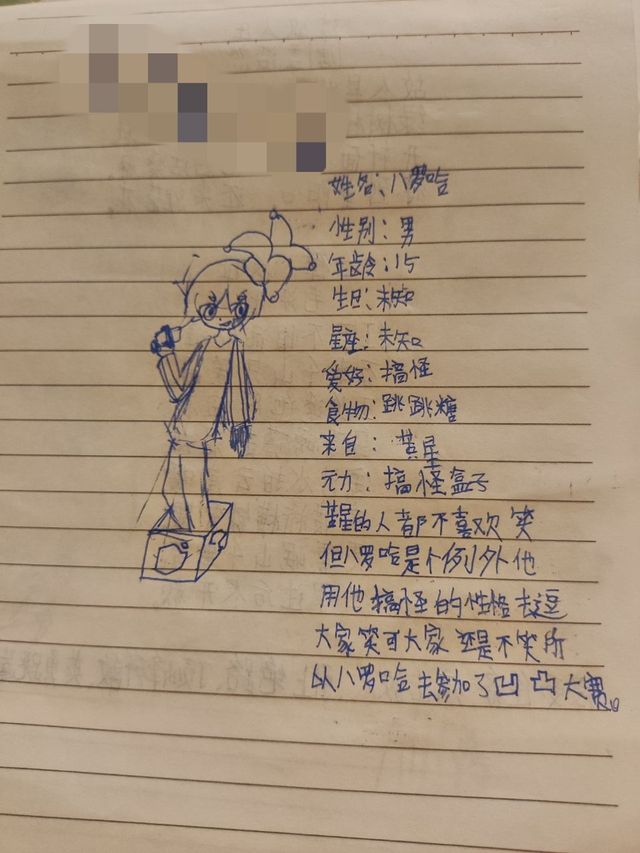 姓名:八罗哈
性别:男
年龄:15
生日:未知
星座:未知
爱好:搞怪
食物:跳跳糖
来自:黄星
元力:搞怪盒子
黄星的人都不喜欢笑
但八罗哈是个例外他
用他搞怪的性格去逗
大家笑可大家还是不笑所
以八罗哈去参加了凹凸大赛。